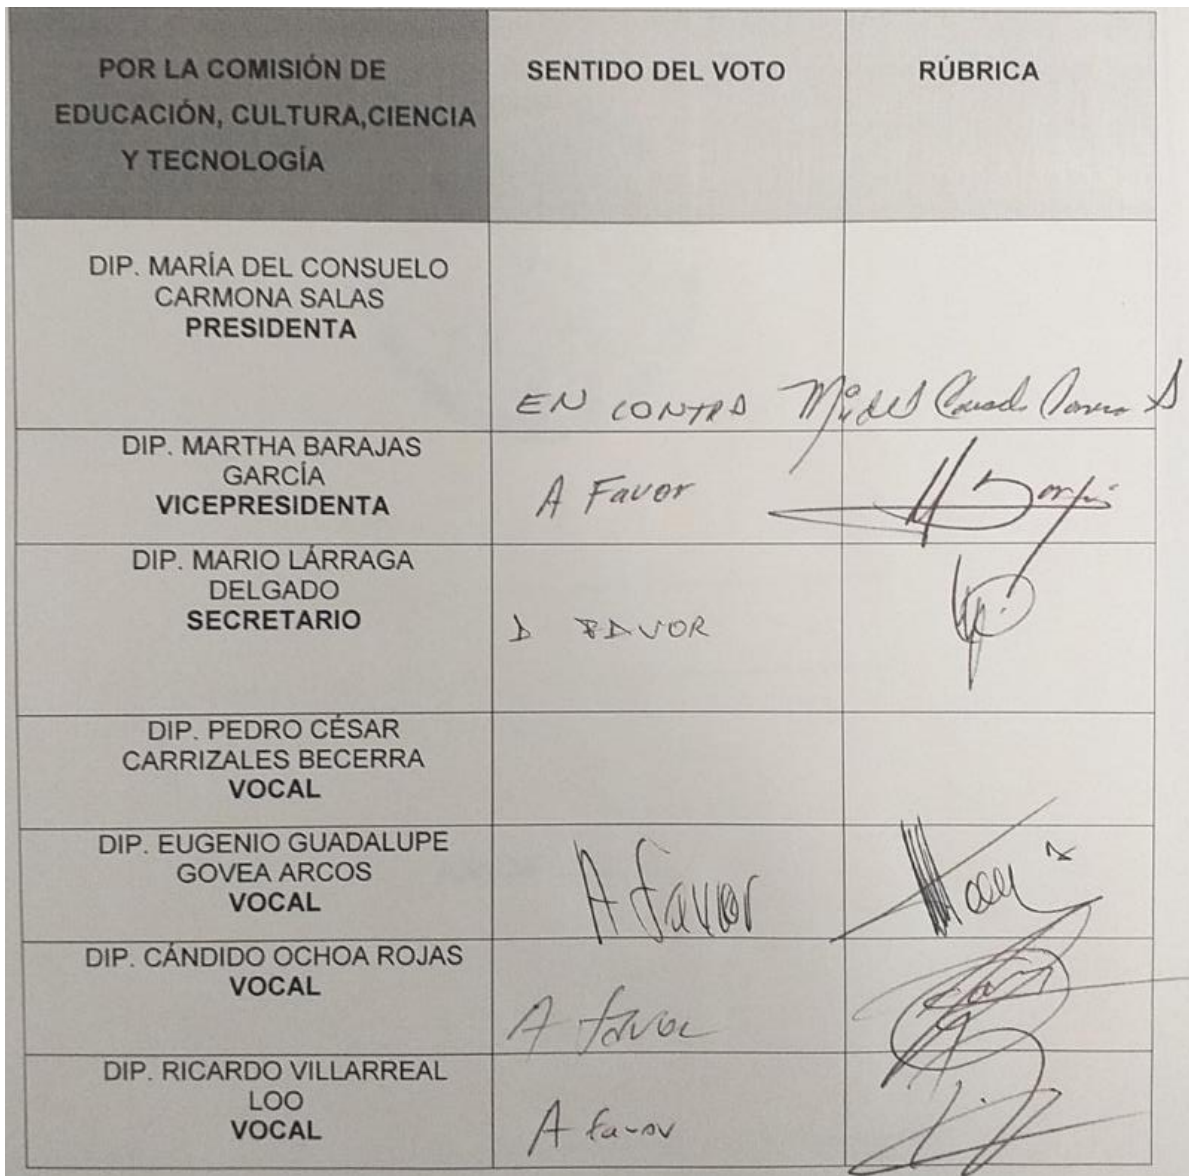 POR LA COMISIÓN DE
EDUCACIÓN, CULTURA,CIENCIA
Y TECNOLOGÍA
SENTIDO DEL VOTO
RÚBRICA
DIP. MARÍA DEL CONSUELO
CARMONA SALAS
PRESIDENTA
EN CONTRA
DIP. MARTHA BARAJAS
GARCÍA
VICEPRESIDENTA
A Favor
DIP. MARIO LÁRRAGA
DELGADO
SECRETARIO
A FAVOR
DIP. PEDRO CÉSAR
CARRIZALES BECERRA
VOCAL
DIP. EUGENIO GUADALUPE
GOVEA ARCOS
VOCAL
A favor
DIP. CÁNDIDO OCHOA ROJAS
VOCAL
A favor
DIP. RICARDO VILLARREAL
LOO
VOCAL
A favor